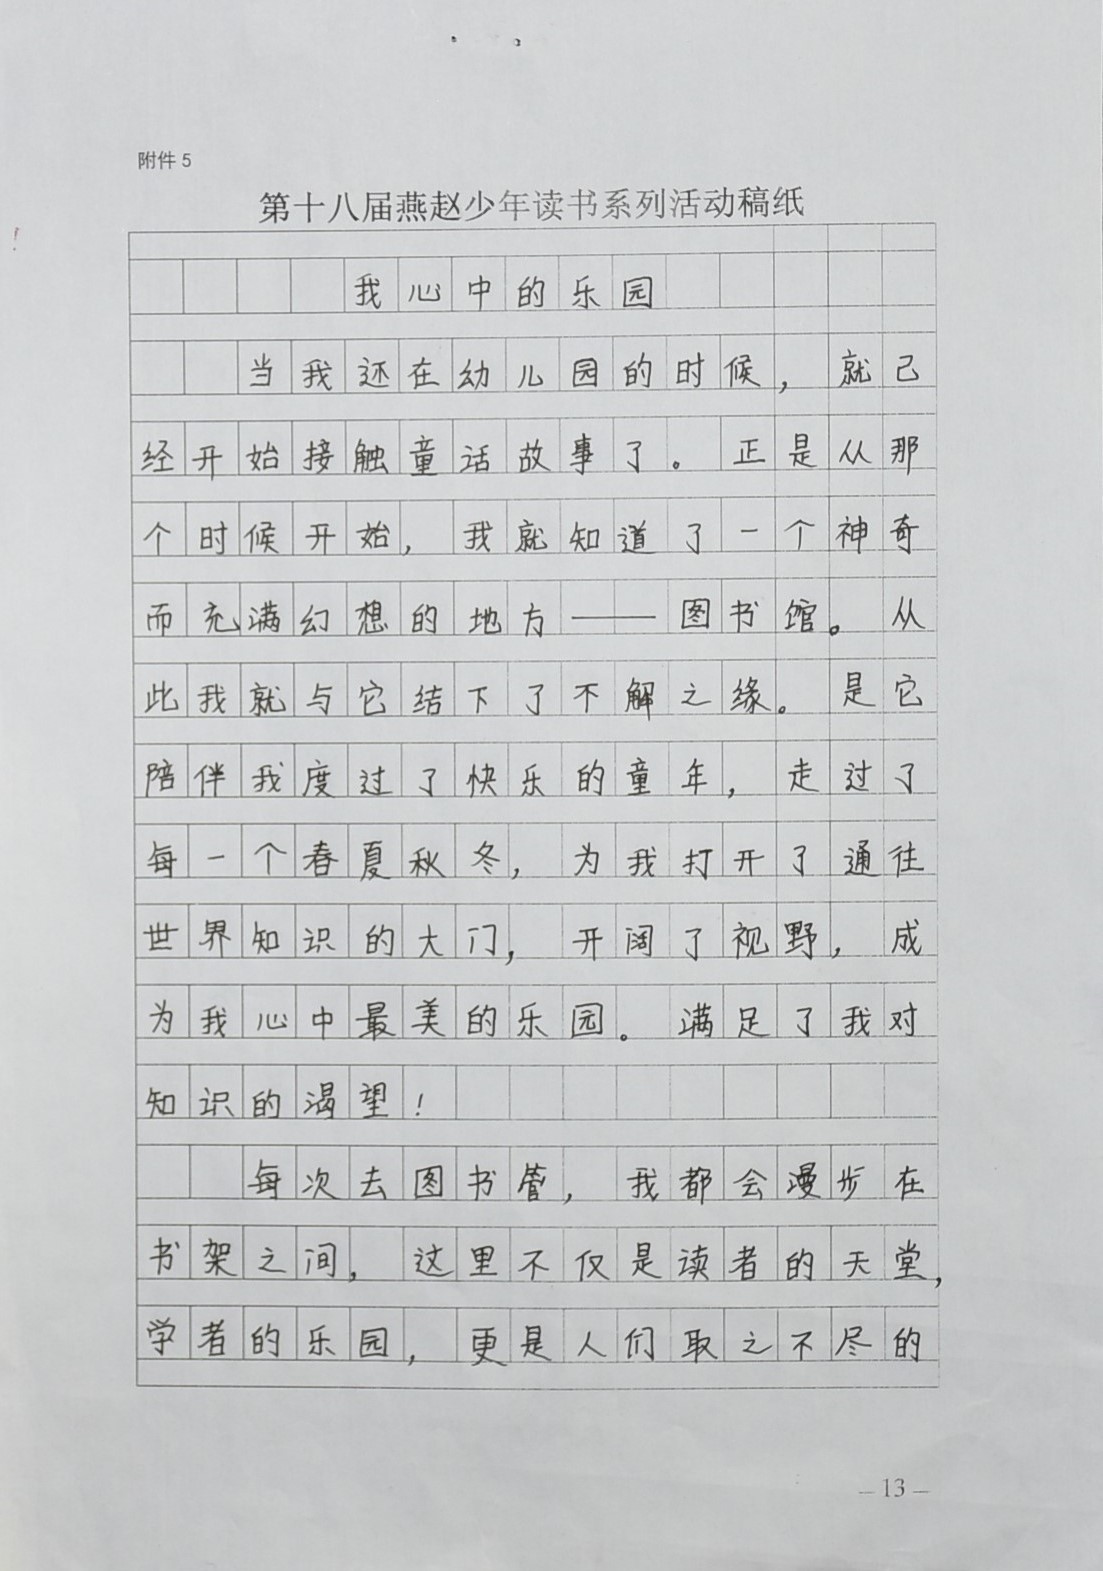 附件5
第十八届燕赵少年读书系列活动稿纸
我心中的乐园
当我还在幼儿园的时候，就己
经开始接触童话故事了。正是从那
个时候开始，我就知道了一个神奇
而充满幻想的地方——图书馆。从
此我就与它结下了不解之缘。是它
陪伴我度过了快乐的童年，走过了
每一个春夏秋冬，为我打开了通往
世界知识的大门，开阔了视野，成
为我心中最美的乐园。满足了我对
知识的渴望！
每次去图书管，我都会漫步在
书架之间，这里不仅是读者的天堂，
学者的乐园，更是人们取之不尽的
—13—